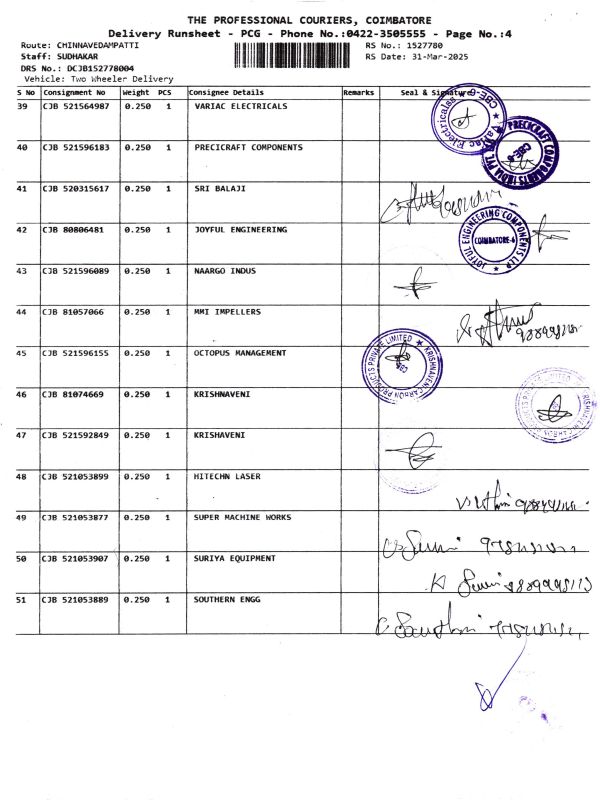 THE PROFESSIONAL COURIERS, COIMBATORE
Delivery Runsheet - PCG - Phone No.:0422-3505555 - Page No.:4
Route: CHINNAVEDAMPATTI RS No.: 1527780
Staff: SUDHAKAR RS Date: 31-Mar-2025
DRS No.: DCJB152778004
Vehicle: Two Wheeler Delivery
S No Consignment No Weight PCS Consignee Details Remarks Seal & Signature
39 CJB 521564987 0.250 1 VARIAC ELECTRICALS
Variac Electricals CBE-6
40 CJB 521596183 0.250 1 PRECICRAFT COMPONENTS
PRECICRAFT COMPONENTS INDIA PVT CBE-6
41 CJB 520315617 0.250 1 SRI BALAJI
42 CJB 80806481 0.250 1 JOYFUL ENGINEERING
JOYFUL ENGINEERING COMPONENTS LLP COIMBATORE-6
43 CJB 521596089 0.250 1 NAARGO INDUS
44 CJB 81057066 0.250 1 MMI IMPELLERS
45 CJB 521596155 0.250 1 OCTOPUS MANAGEMENT
KRISHNAVENI CARBON PRODUCTS PRIVATE LIMITED
46 CJB 81074669 0.250 1 KRISHNAVENI
KRISHNAVENI CARBON PRODUCTS PRIVATE LIMITED
47 CJB 521592849 0.250 1 KRISHAVENI
48 CJB 521053899 0.250 1 HITECHN LASER
49 CJB 521053877 0.250 1 SUPER MACHINE WORKS
50 CJB 521053907 0.250 1 SURIYA EQUIPMENT
51 CJB 521053889 0.250 1 SOUTHERN ENGG